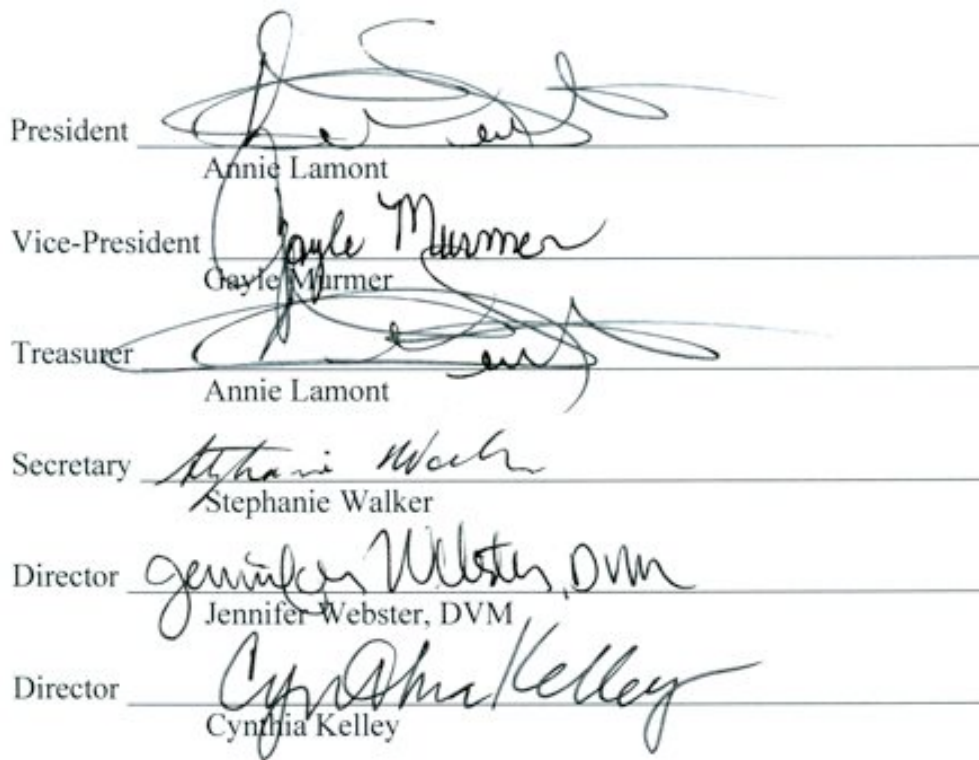 President
Annie Lamont
Vice-President Gayle Murmer
Gayle Murmer
Treasurer
Annie Lamont
Secretary Stephanie Walker
Stephanie Walker
Director Jennifer Webster, DVM
Jennifer Webster, DVM
Director Cynthia Kelley
Cynthia Kelley